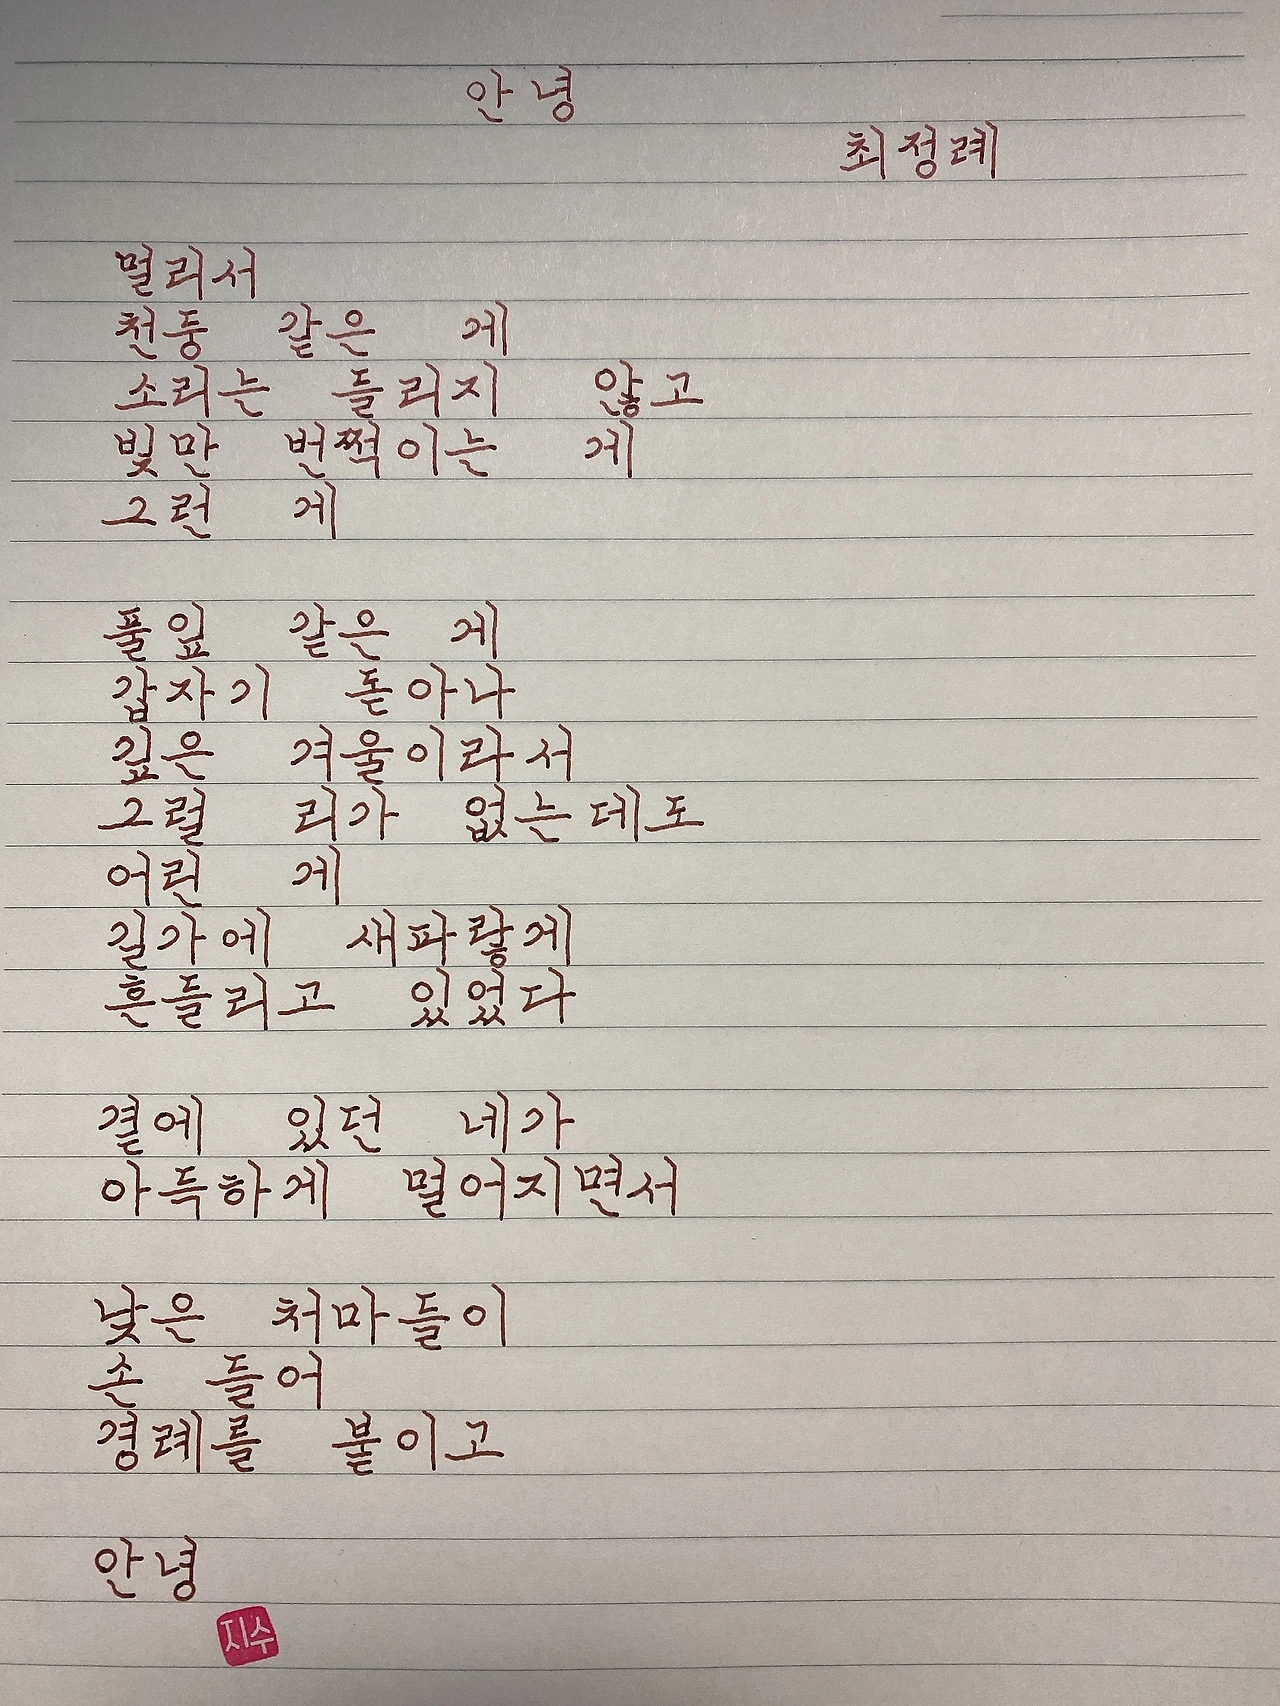 안녕
최정례
멀리서
천둥 같은 게
소리는 들리지 않고
빛만 번쩍이는 게
그런 게
풀잎 같은 게
갑자기 돋아나
깊은 겨울이라서
그럴 리가 없는데도
어린 게
길가에 새파랗게
흔들리고 있었다
곁에 있던 네가
아득하게 멀어지면서
낮은 처마들이
손 들어
경례를 붙이고
안녕
지수